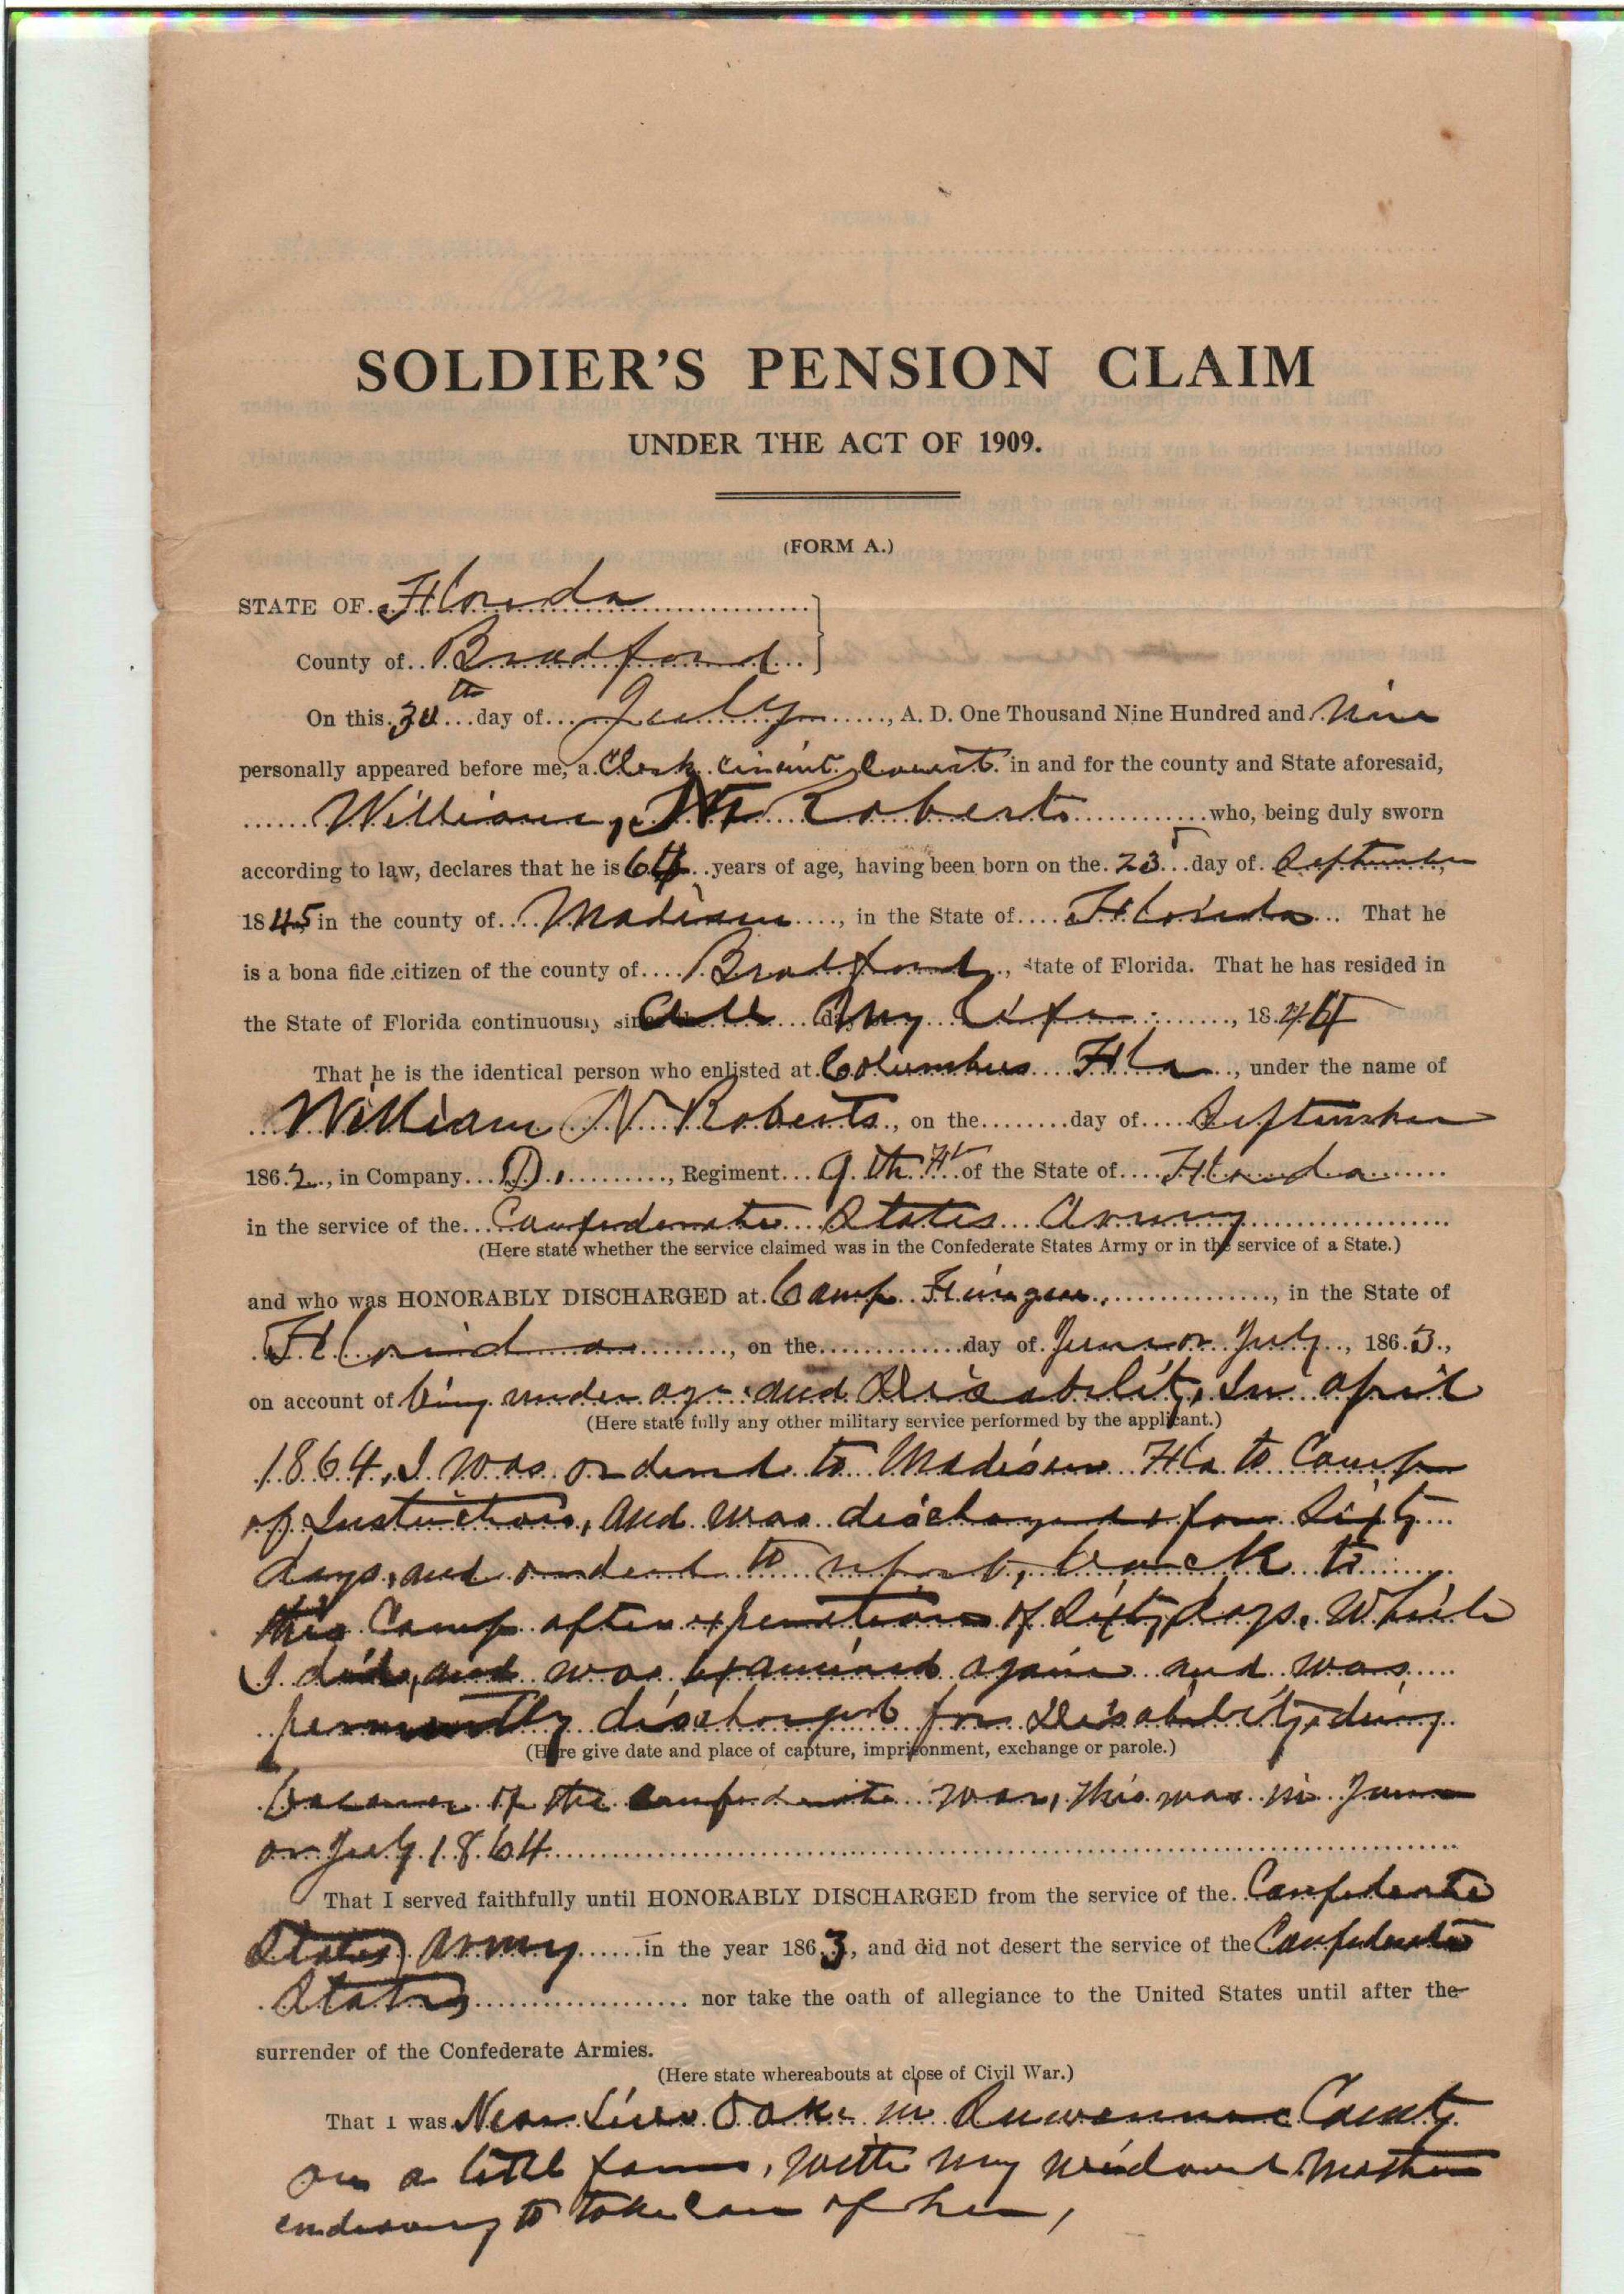 SOLDIER'S PENSION CLAIM
UNDER THE ACT OF 1909.
(FORM A.)
STATE OF Florida
County of Bradford
On this 30th day of July, A. D. One Thousand Nine Hundred and Nine
personally appeared before me, a Clerk Circuit Court in and for the county and State aforesaid,
William, N Roberts who, being duly sworn
according to law, declares that he is 64 years of age, having been born on the 23 day of September
1845 in the county of Madison, in the State of Florida That he
is a bona fide citizen of the county of Bradford, State of Florida. That he has resided in
the State of Florida continuously since All My Life, 1845
That he is the identical person who enlisted at Columbus Fla, under the name of
William N Roberts, on the day of September
1862, in Company D., Regiment 9th Fl of the State of Florida
in the service of the Confederate States Army
(Here state whether the service claimed was in the Confederate States Army or in the service of a State.)
and who was HONORABLY DISCHARGED at Camp, in the State of
Florida, on the day of June or July, 1863,
on account of being under age and Disability, In April
(Here state fully any other military service performed by the applicant.)
1864, I was ordered to Madison Fla to Camp
of Instruction, and was discharged for Sixty
days, and ordered to report, back to
this Camp after expiration of Sixty days. Which
I did, and was examined again and was
permently discharged for Disability, during
(Here give date and place of capture, imprisonment, exchange or parole.)
of the Confederate war, this was in June
or July 1864
That I served faithfully until HONORABLY DISCHARGED from the service of the Confederate
States Army in the year 1863, and did not desert the service of the Confederate
States nor take the oath of allegiance to the United States until after the
surrender of the Confederate Armies.
(Here state whereabouts at close of Civil War.)
That I was Near Live Oak in Suwannee County
on a little farm, with my widowed mother
endeavoring to take care of her,